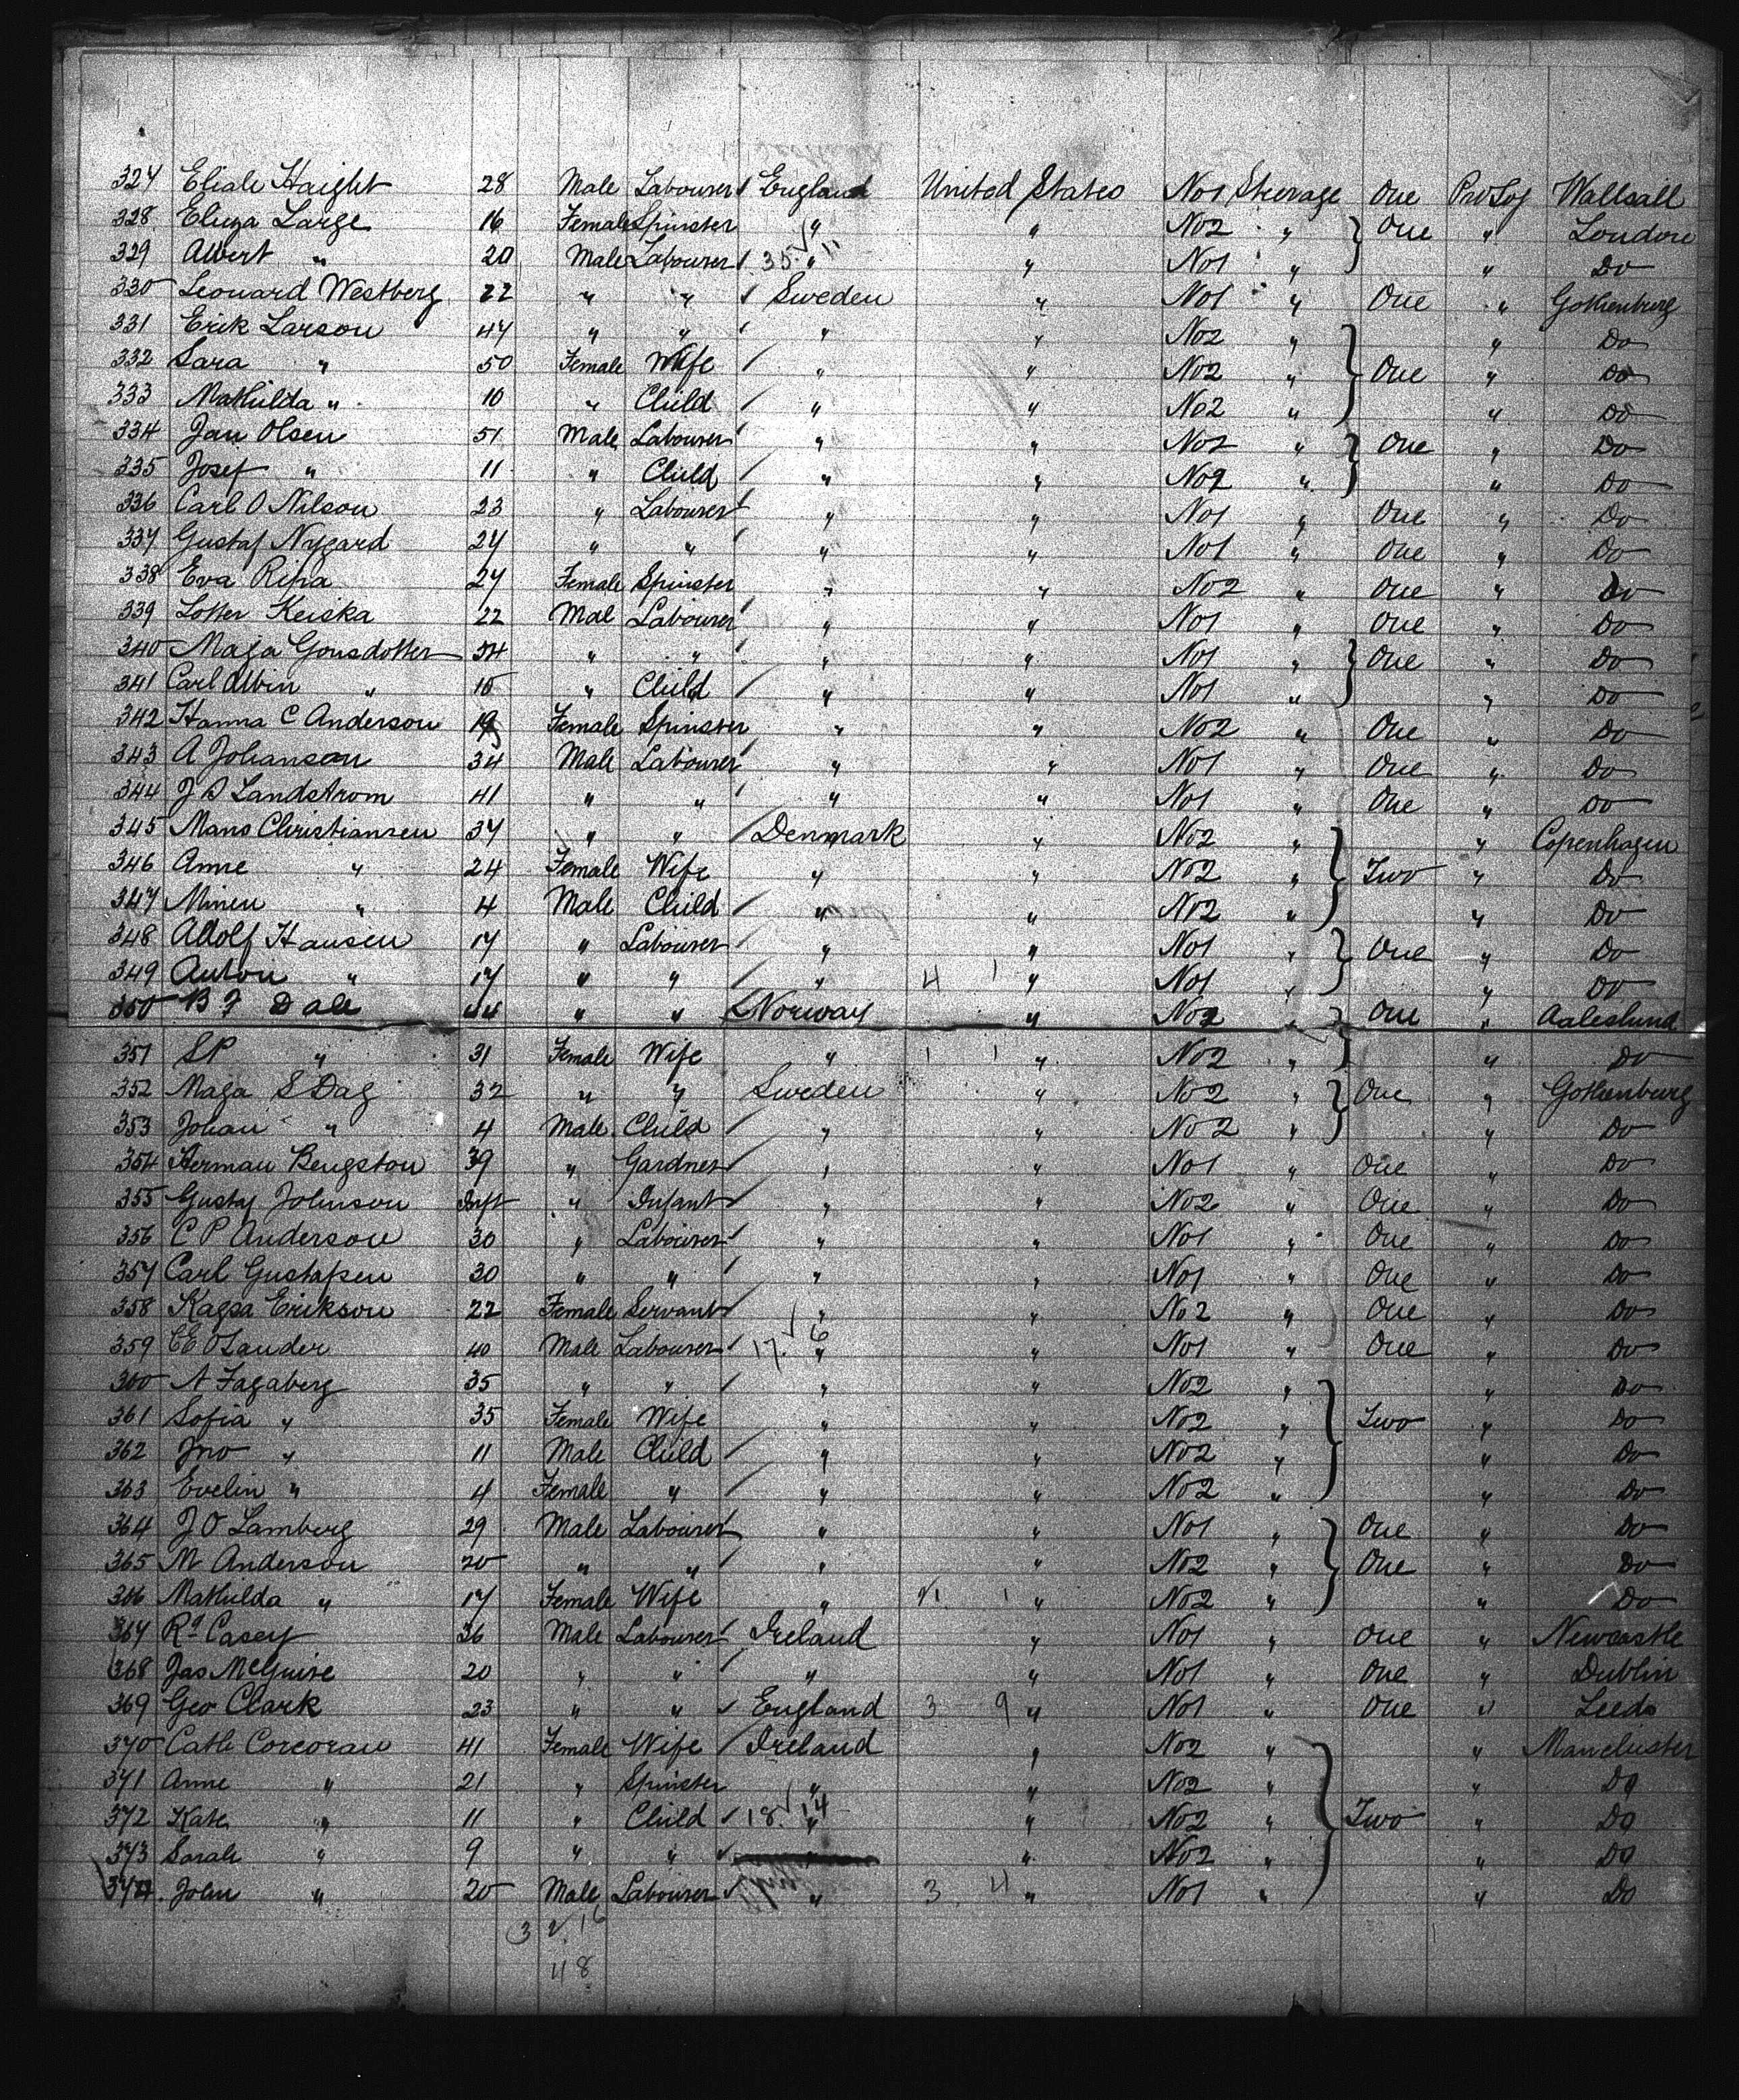 327 Eliah Haight 28 Male Labourer England United States No1 Steerage One ProSoj Wallsall
328 Eliza Large 16 Female Spinster " " No2 " One " London
329 Albert " 20 Male Labourer 35 11 " " No1 " " Do
330 Leonard Westberg 22 " " Sweden " No1 " One " Gothenburg
331 Erik Larson 47 " " " " No2 " " Do
332 Sara " 50 Female Wife " " No2 " One " Do
333 Mathilda " 10 " Child " " No2 " " Do
334 Jan Olsen 51 Male Labourer " " No2 " One " Do
335 Josef " 11 " Child " " No2 " " Do
336 Carl O Nilson 23 " Labourer " " No1 " One " Do
337 Gustaf Nygard 27 " " " " No1 " One " Do
338 Eva Ripa 27 Female Spinster " " No2 " One " Do
339 Lotter Keiska 22 Male Labourer " " No1 " One " Do
340 Maja Gonsdotter 34 " " " " No1 " One " Do
341 Carl Albin " 10 " Child " " No1 " " Do
342 Hanna C Anderson 19 Female Spinster " " No2 " One " Do
343 A Johanson 34 Male Labourer " " No1 " One " Do
344 J S Landstrom 41 " " " " No1 " One " Do
345 Mans Christiansen 37 " " Denmark " No2 " " Copenhagen
346 Anne " 24 Female Wife " " No2 " Two " Do
347 Minen " 4 Male Child " " No2 " " Do
348 Adolf Hansen 17 " Labourer " " No1 " One " Do
349 Anton " 17 " " " 4 1 " No1 " " Do
350 B J Dale 44 " " Norway " No2 " One " Aaleslund
351 SP " 31 Female Wife " 1 1 " No2 " " Do
352 Maja S Dag 32 " " Sweden " No2 " One " Gothenburg
353 Johan " 4 Male Child " " No2 " " Do
354 Herman Bengston 39 " Gardner " " No1 " One " Do
355 Gustaf Johnson Inft " Infant " " No2 " One " Do
356 C P Anderson 30 " Labourer " " No1 " One " Do
357 Carl Gustafsen 30 " " " " No1 " One " Do
358 Kagsa Erikson 22 Female Servant " " No2 " One " Do
359 CE Olander 40 Male Labourer 17 6 " " No1 " One " Do
360 A Fagaberg 35 " " " " No2 " " Do
361 Sofia " 35 Female Wife " " No2 " Two " Do
362 Jno " 11 Male Child " " No2 " " Do
363 Evelin " 4 Female " " " No2 " " Do
364 J O Lamberg 29 Male Labourer " " No1 " One " Do
365 M Anderson 20 " " " " No2 " One " Do
366 Mathilda " 17 Female Wife " 1 " No2 " " Do
367 Rd Casey 36 Male Labourer Ireland " No1 " One " Newcastle
368 Jas McGuire 20 " " " " No1 " One " Dublin
369 Geo Clark 23 " " England 3 9 " No1 " One " Leeds
370 Cath Corcoran 41 Female Wife Ireland " No2 " " Manchester
371 Anne " 21 " Spinster " " No2 " " Do
372 Kate " 11 " Child 18 14 " " No2 " Two " Do
373 Sarah " 9 " " " No2 " " Do
374 John " 20 Male Labourer " 3 4 " No1 " " Do
3 2 16
48